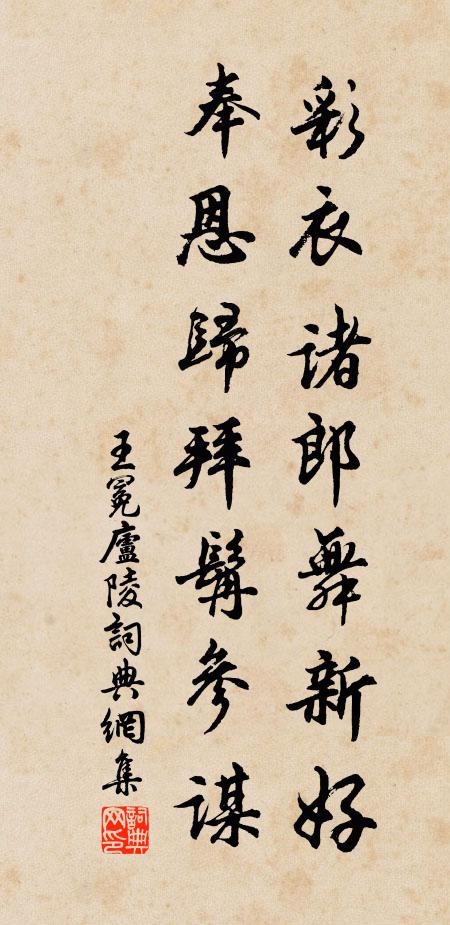 彩衣诸郎舞新好
奉恩歸拜髯參謀
王冕廬陵詞典網集
詞典網印